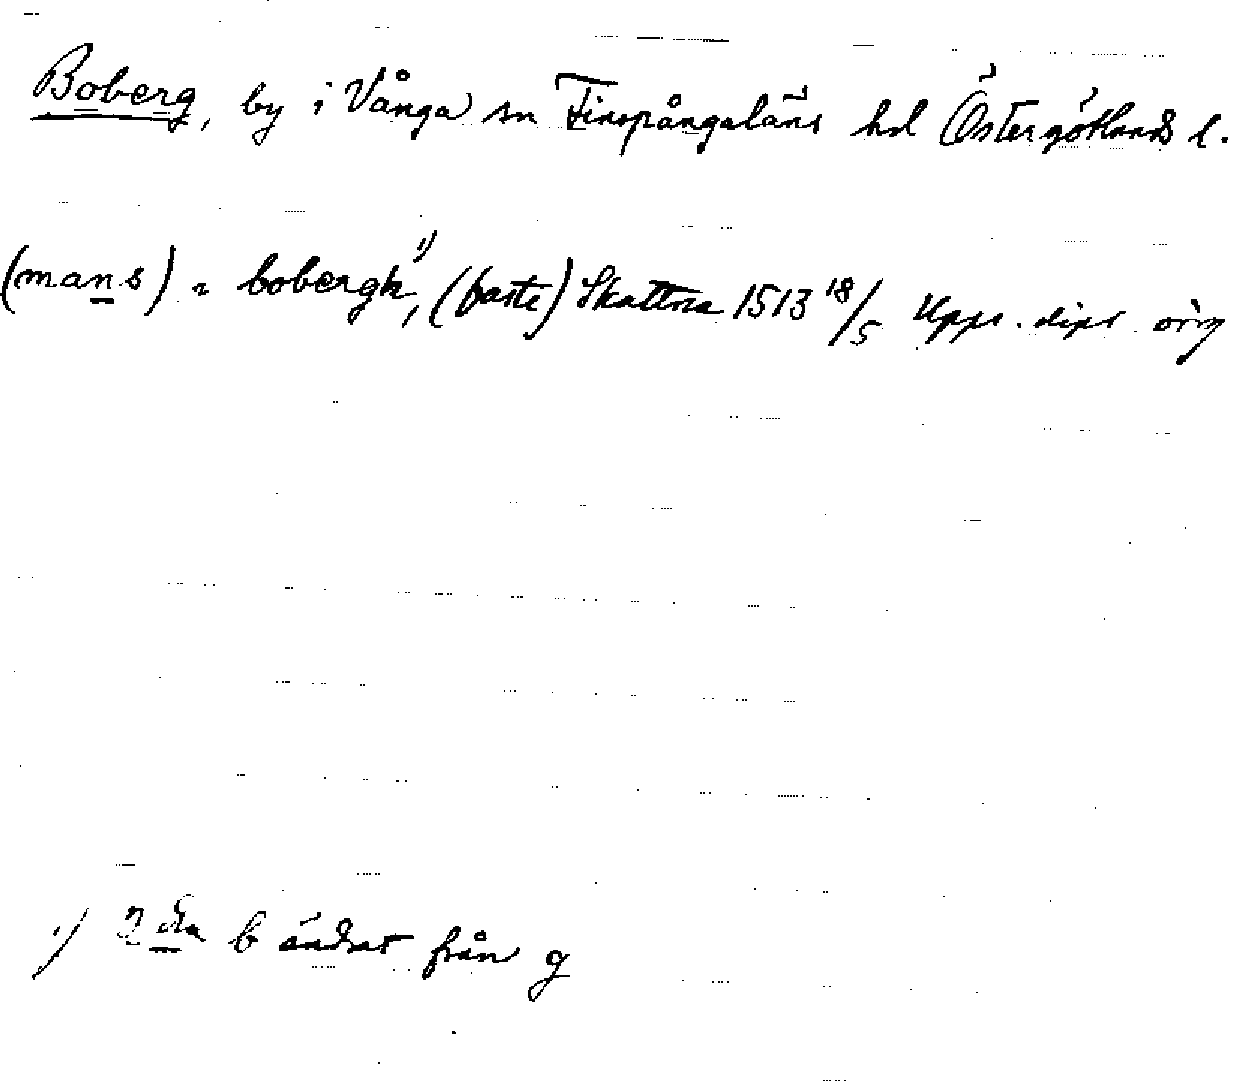 Boberg, by i Vånga sn Finspångaläns hd Östergötlands l.
(mans) i bobergh 1), (faste) Skattna 1513 18/5 Upps. dipl orig
1) 2 dra b ändrat från g